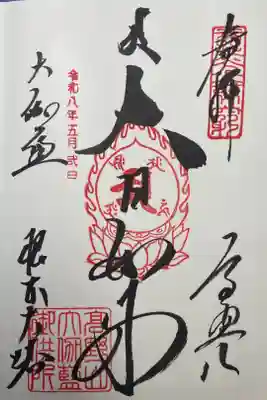 奉拝
高野山
大日如来
令和八年五月弐日
大伽藍
根本大塔
高野山
大伽藍
御供所